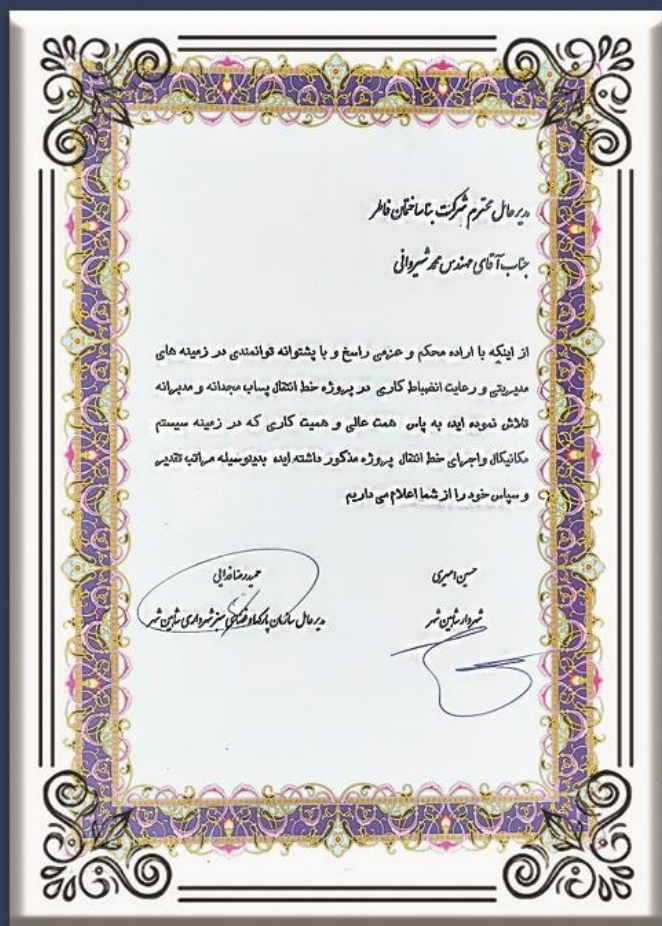 مدیرعامل محترم شرکت بناساختمان فاطر
جناب آقای مهندس محمد شیروانی
از اینکه با اراده محکم و عزمی راسخ و با پشتوانه توانمندی در زمینه های
مدیریتی و رعایت انضباط کاری در پروژه خط انتقال پساب مجدانه و مدبرانه
تلاش نموده اید، به پاس همت عالی و همیت کاری که در زمینه سیستم
مکانیکال واجرای خط انتقال پروژه مذکور داشته اید، بدینوسیله مراتب تقدیر
و سپاس خود را از شما اعلام می داریم
حسین امیری
شهردار شاهین شهر
حمیدرضا فدائی
مدیرعامل سازمان پارکها و فضای سبز شهرداری شاهین شهر